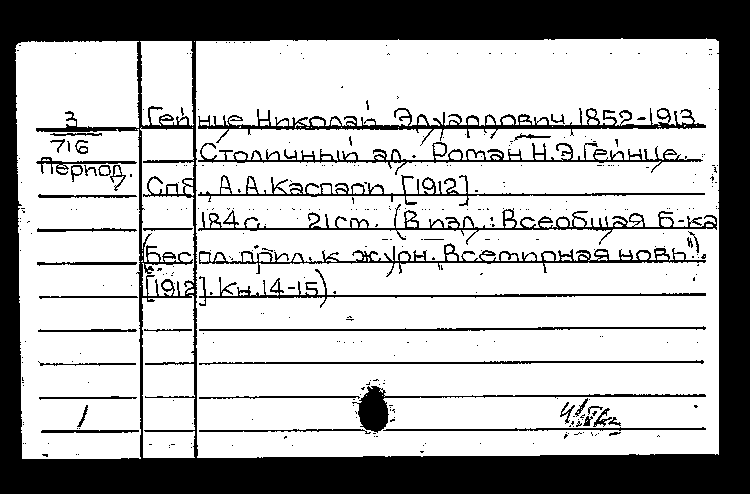 3 Гейнце, Николай Эдуардович, 1852-1913
716 Столичный ад. Роман Н.Э.Гейнце.
Период. Спб., А.А.Каспари, [1912].
184 с. 21 ст. (В изд.: Всеобщая б-ка
(Беспл. прил. к журн. "Всемирная новь").
[1912]. Кн. 14-15).
1